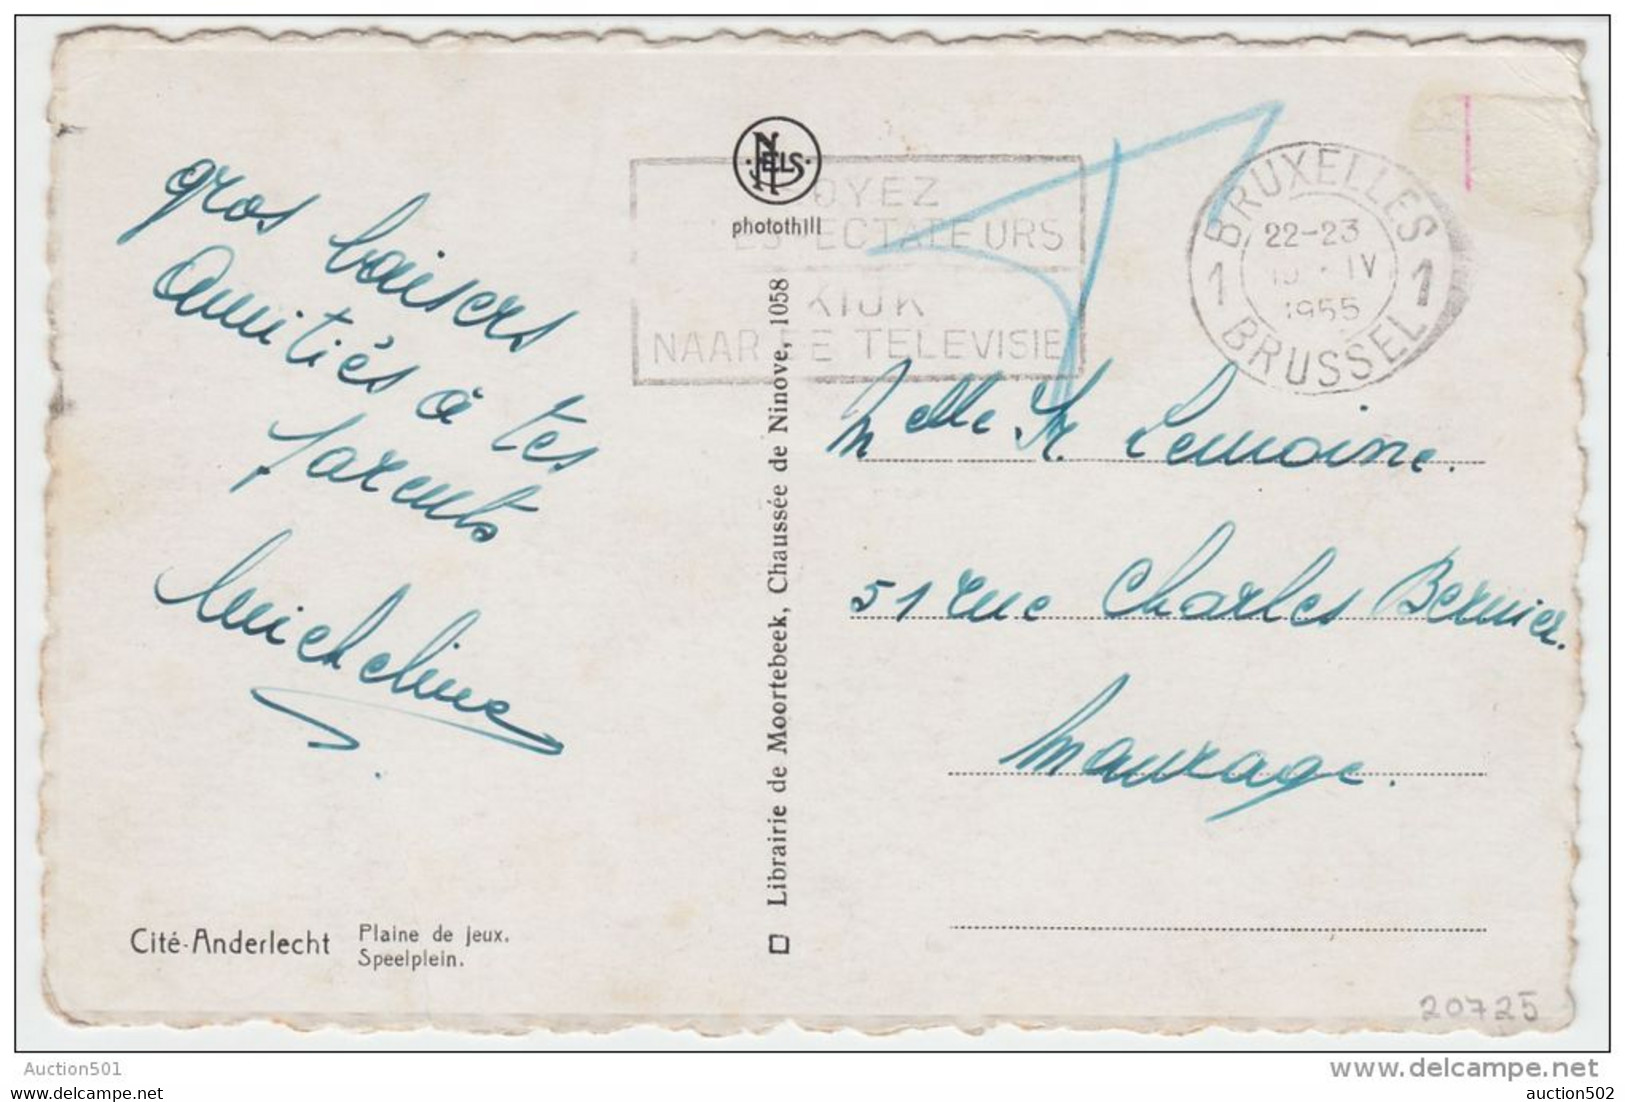 gros baisers
Amitiés à tes
parents
Micheline
Cité-Anderlecht
Plaine de jeux.
Speelplein.
NELS
photothill
Librairie de Moortebeek, Chaussée de Ninove, 1058
OYEZ
ESPECTATEURS
KIJK
NAAR DE TELEVISIE
BRUXELLES
1 1
22-23
IV
1955
BRUSSEL
Melle Lemoine.
51 rue Charles Bernier.
Maurage.
20725
Auction501
www.delcampe.net
auction502